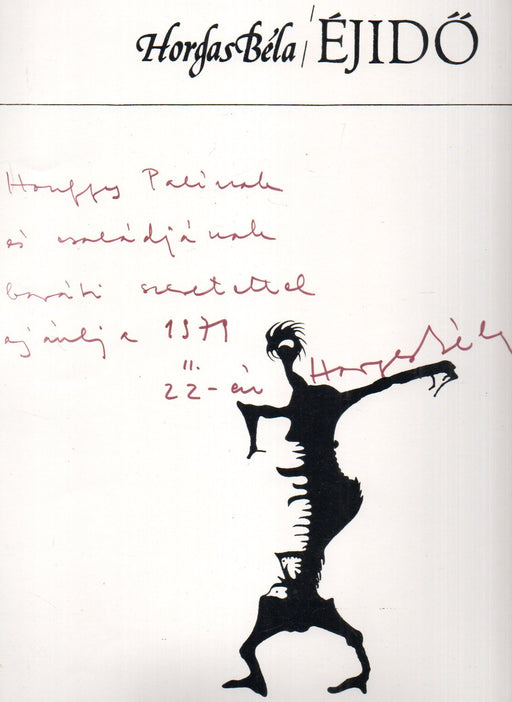 Horgas Béla / ÉJIDŐ
Palinak
és családjának
baráti szeretettel
ajánlja 1979
II.
22-én Horgas Béla